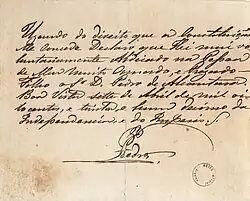 Usando do direito que a Constituição
Me concede Declaro que Hei mui vo-
luntariamente Abdicado na Pessoa
de Meu Muito Amado, e Prezado
Filho o Sr. D. Pedro de Alcantara
Boa Vista sette de Abril de mil oi-
tocentos, e trinta, e hum decimo da
Independencia, e do Imperio.
Pedro